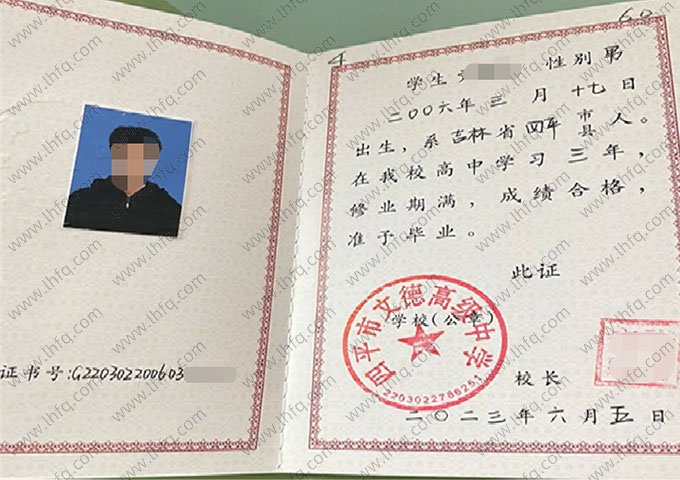 证书号:G220302200603
4
60
学生 性别 男
二〇〇六年三月十七日
出生,系吉林省四平市县人。
在我校高中学习三年,
修业期满,成绩合格,
准予毕业。
此证
四平市文德高级中学
学校(公章)
2203022786251
校长
二〇二三年六月五日
www.lhfq.com